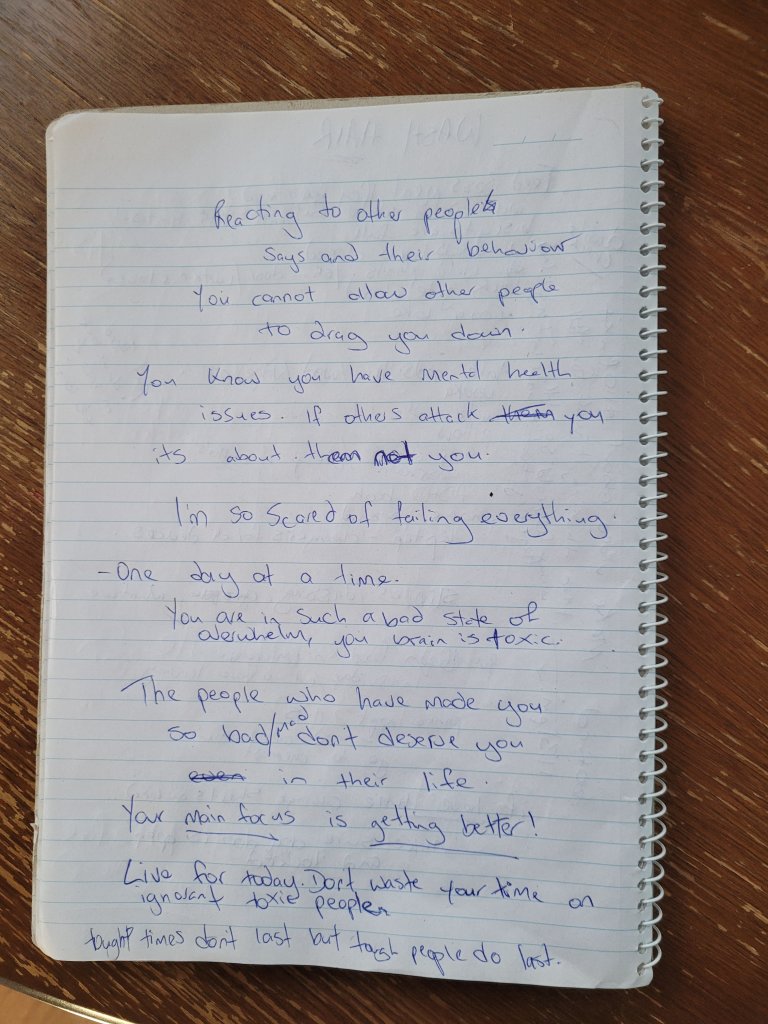 Reacting to other people
says and their behaviour
You cannot allow other people
to drag you down.
You know you have mental health
issues. If others attack them you
its about them not you.
I'm so scared of failing everything.
- One day at a time.
You are in such a bad state of
overwhelm, you brain is toxic.
The people who have made you
so bad/mad dont deserve you
even in their life.
Your main focus is getting better!
Live for today. Dont waste your time on
ignorant toxic people
tought times don't last but tough people do last.